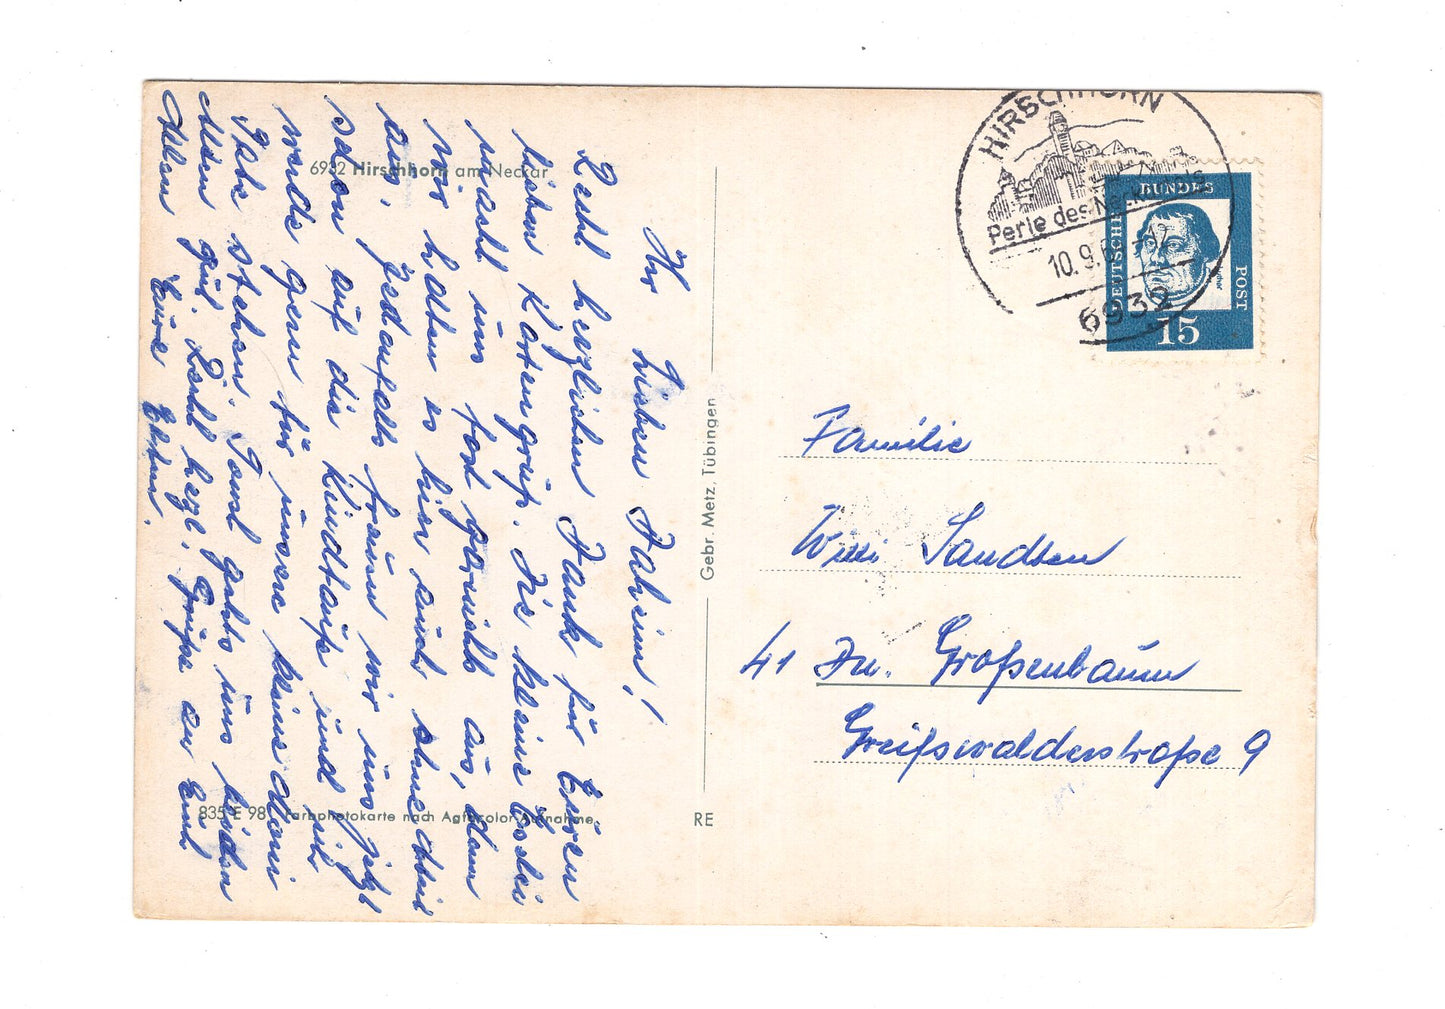 6932 Hirschhorn am Neckar
Ihr Lieben Daheim!
Recht herzlichen Dank für Euren
lieben Kartengruß. Die kleine
macht uns fast garnichts aus, denn
wir hatten es hier auch ohne
aus. Jedenfalls freuen wir uns jetzt
schon auf die Kindtaufe und
gerne für unsere kleine
stehen. Sonst gehts uns beiden
gut. Recht herzl. Grüße an Euch
Allen Eure
835 E 98 Farbphotokarte nach Agfacolor-Aufnahme
Gebr. Metz, Tübingen
RE
HIRSCHHORN
Perle des Neckartals
10.9.6
6932
DEUTSCHE BUNDESPOST
Luther
15
Familie
Willi Sandten
41 Du. Großenbaum
Greifswalderstraße 9